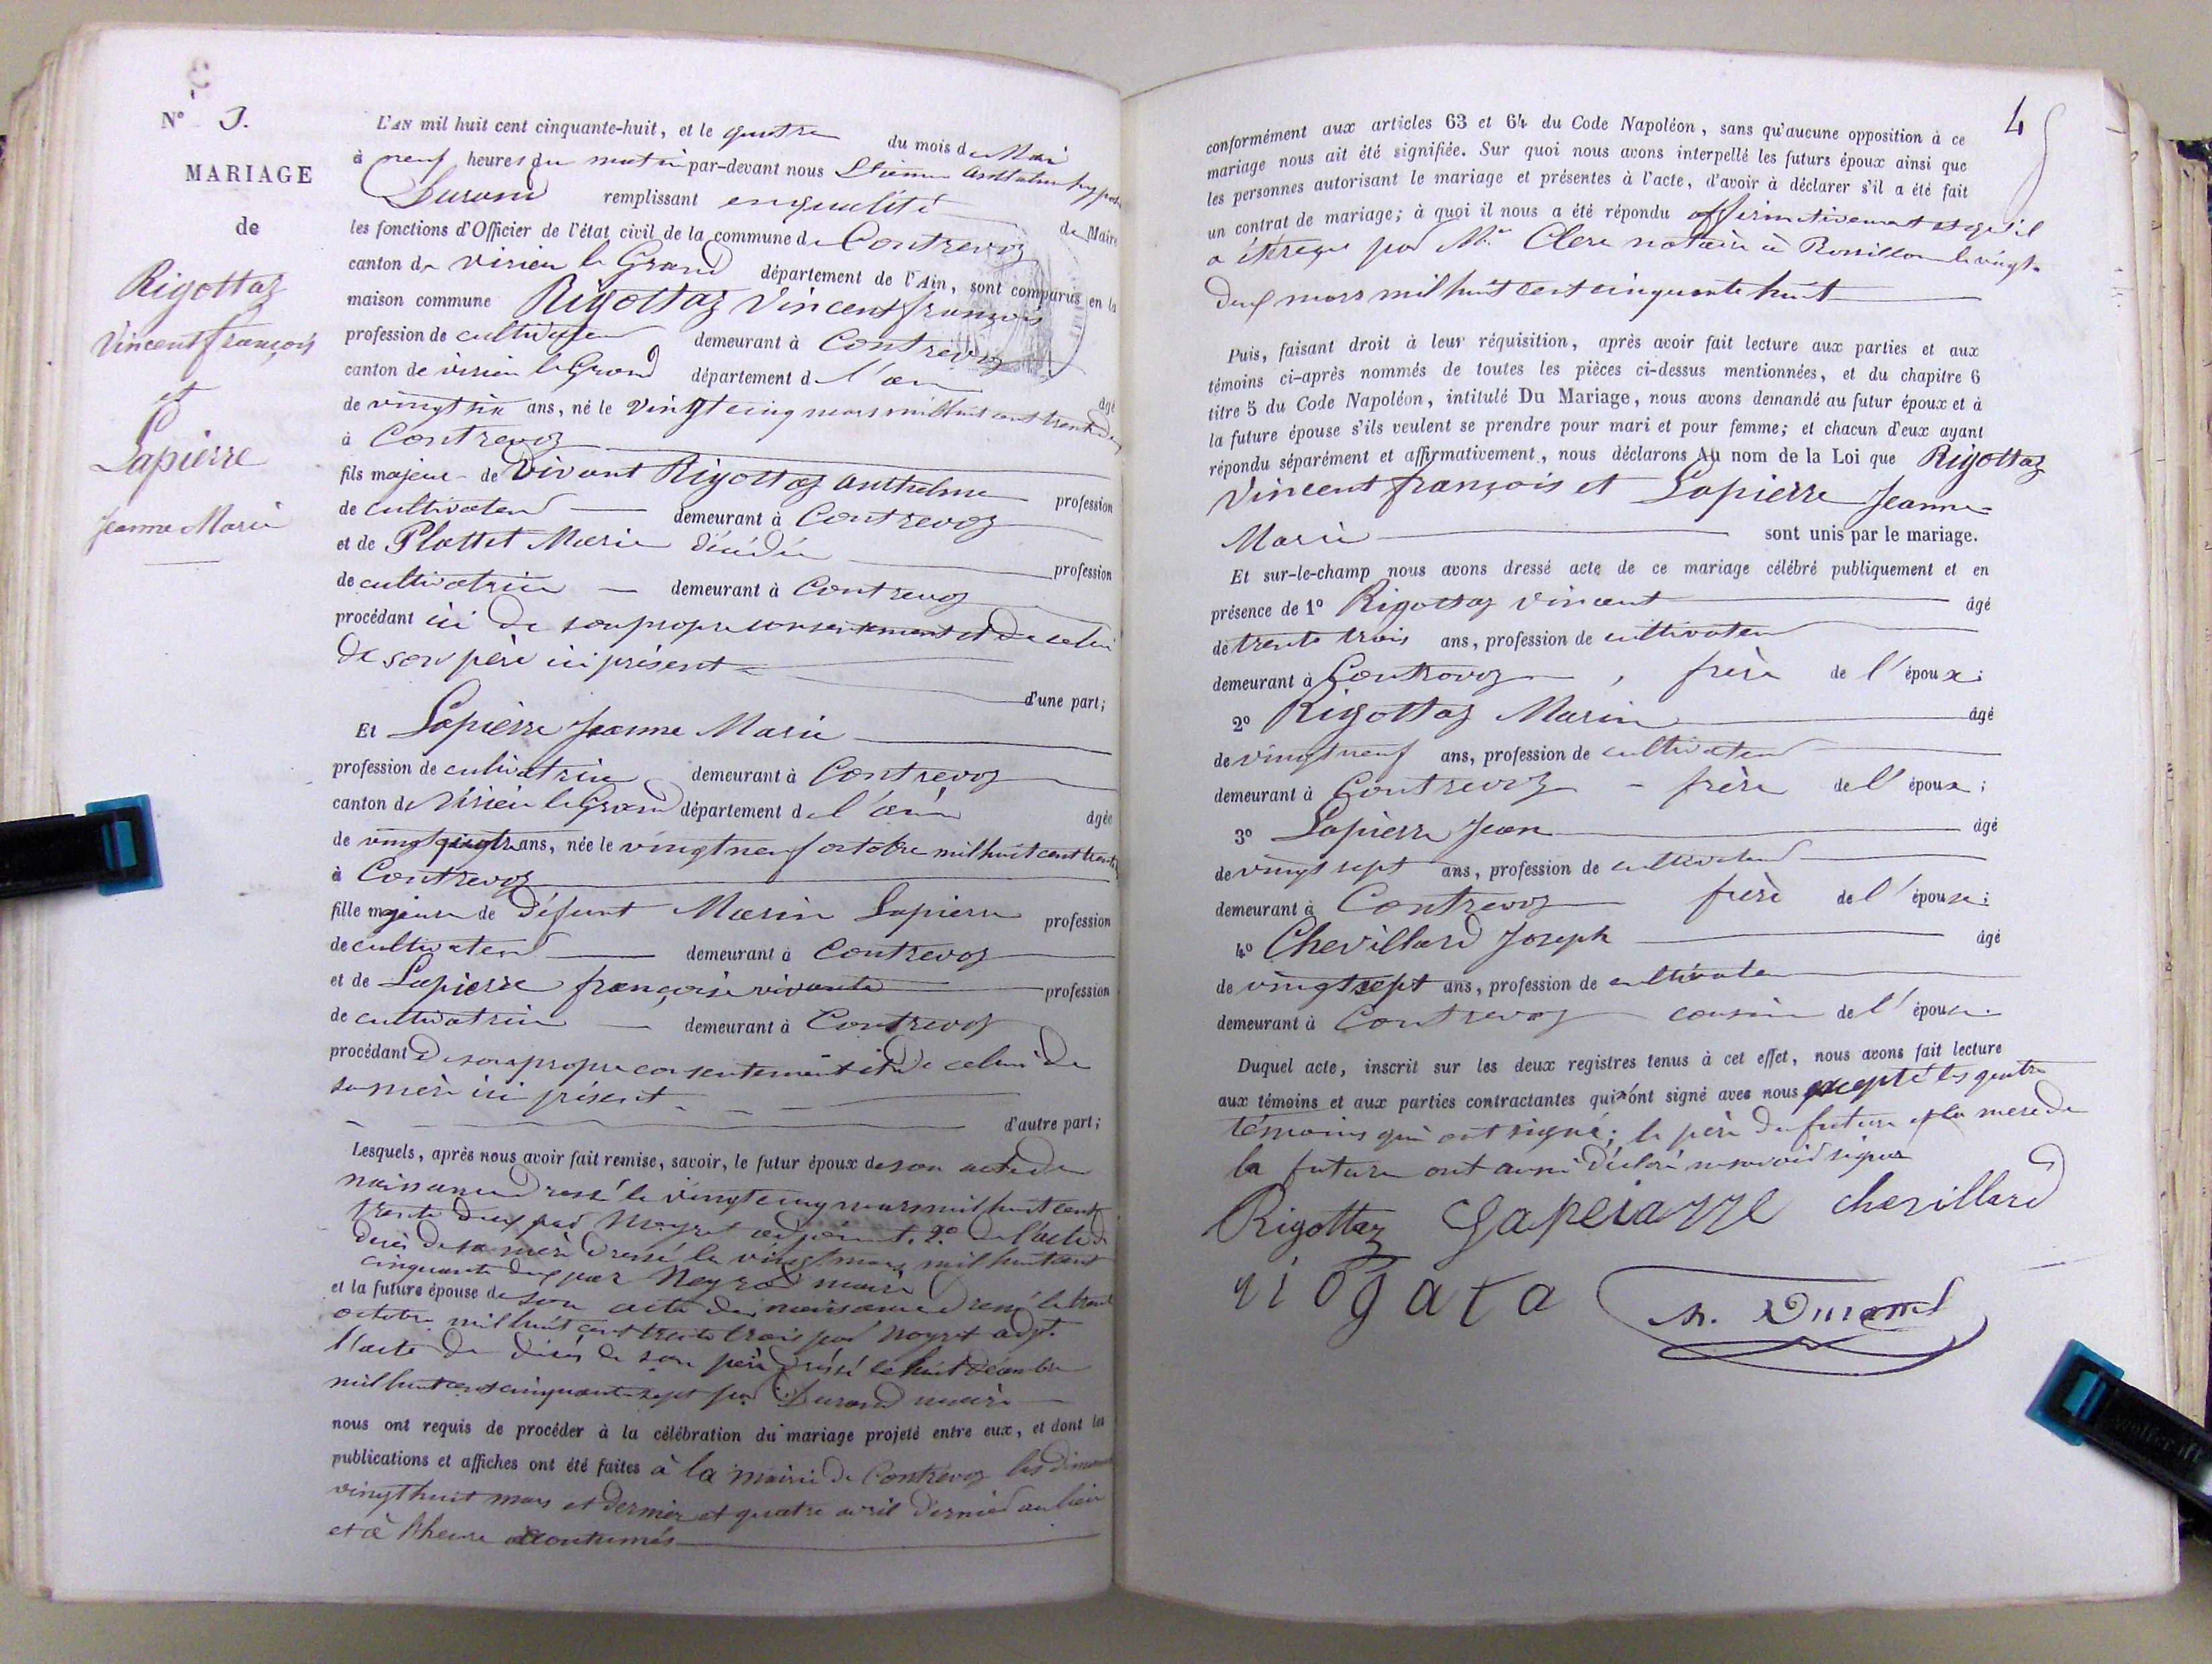 N° 3.
MARIAGE
de
Rigottaz
Vincent françois
et
Lapierre
Jeanne Marie
L'AN mil huit cent cinquante-huit, et le quatre du mois de Mai
à neuf heures du matin par-devant nous Etienne Anthelme hyppolite
Durand remplissant en qualité de Maire
les fonctions d'Officier de l'état civil de la commune de Contrevoz
canton de virieu le Grand département de l'Ain, sont comparus en la
maison commune Rigottaz Vincent françois
profession de cultivateur demeurant à Contrevoz
canton de virieu le Grand département de l'ain âgé
de vingt six ans, né le vingt cinq mars mil huit cent trente deux
à Contrevoz
fils majeur de vivant Rigottaz Anthelme profession
de cultivateur demeurant à Contrevoz
et de Plattet Marie décédée profession
de cultivatrice demeurant à Contrevoz
procédant ici de son propre consentement et de celui
de son père ici présent
d'une part;
Et Lapierre Jeanne Marie
profession de cultivatrice demeurant à Contrevoz
canton de Virieu le Grand département de l'ain âgée
de vingt quatre ans, née le vingt neuf octobre mil huit cent trente
à Contrevoz
fille majeure de défunt Marin Lapierre profession
de cultivateur demeurant à Contrevoz
et de Lapierre françoise vivante profession
de cultivatrice demeurant à Contrevoz
procédant de son propre consentement et de celui de
sa mère ici présent
d'autre part;
Lesquels, après nous avoir fait remise, savoir, le futur époux de son acte de
naissance dressé le vingt cinq mars mil huit cent
trente deux par Neyret adjoint. 2° de l'acte de
décès de sa mère dressé le vingt mars mil huit cent
cinquante deux par Neyrod maire
et la future épouse de son acte de naissance dressé le trente
octobre mil huit cent trente trois par Neyret adjt.
l'acte de décès de son père dressé le huit décembre
mil huit cent cinquante sept par Durand maire
nous ont requis de procéder à la célébration du mariage projeté entre eux, et dont les
publications et affiches ont été faites à la mairie de Contrevoz les dimanches
vingt huit mars et dernier et quatre avril dernier au lieu
et à l'heure accoutumés
4
conformément aux articles 63 et 64 du Code Napoléon, sans qu'aucune opposition à ce
mariage nous ait été signifiée. Sur quoi nous avons interpellé les futurs époux ainsi que
les personnes autorisant le mariage et présentes à l'acte, d'avoir à déclarer s'il a été fait
un contrat de mariage; à quoi il nous a été répondu affirmativement et qu'il
a été reçu par Me Clerc notaire à Rossillon le vingt
deux mars mil huit cent cinquante huit
Puis, faisant droit à leur réquisition, après avoir fait lecture aux parties et aux
témoins ci-après nommés de toutes les pièces ci-dessus mentionnées, et du chapitre 6
titre 5 du Code Napoléon, intitulé Du Mariage, nous avons demandé au futur époux et à
la future épouse s'ils veulent se prendre pour mari et pour femme; et chacun d'eux ayant
répondu séparément et affirmativement, nous déclarons Au nom de la Loi que Rigottaz
Vincent françois et Lapierre Jeanne
Marie sont unis par le mariage.
Et sur-le-champ nous avons dressé acte de ce mariage célébré publiquement et en
présence de 1° Rigottaz Vincent âgé
de trente trois ans, profession de cultivateur
demeurant à Contrevoz, frère de l'époux;
2° Rigottaz Marin âgé
de vingt neuf ans, profession de cultivateur
demeurant à Contrevoz - frère de l'époux;
3° Lapierre Jean âgé
de vingt sept ans, profession de cultivateur
demeurant à Contrevoz frère de l'épouse;
4° Chevillard Joseph âgé
de vingt sept ans, profession de cultivateur
demeurant à Contrevoz cousin de l'épouse.
Duquel acte, inscrit sur les deux registres tenus à cet effet, nous avons fait lecture
aux témoins et aux parties contractantes qui n'ont signé avec nous excepté les quatre
témoins qui ont signé; le père du futur et la mère de
la future ont aussi déclaré ne savoir signer
Rigottaz Gapeiarre chevillard
rigata h. Durand